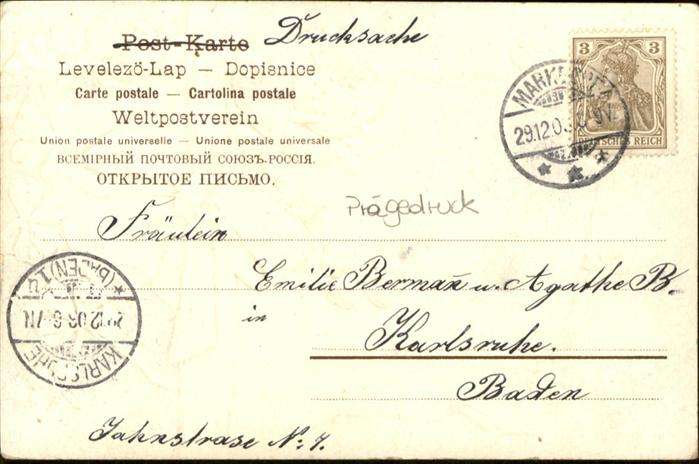 Post-Karte Drucksache
Levelező-Lap — Dopisnice
Carte postale — Cartolina postale
Weltpostverein
Union postale universelle — Unione postale universale
ВСЕМІРНЫЙ ПОЧТОВЫЙ СОЮЗЪ.РОССІЯ.
ОТКРЫТОЕ ПИСЬМО.
3 3
DEUTSCHES REICH
29.12.0
Prägedruck
Fräulein
Emilie Bermañ u. Agathe B.
in
Karlsruhe.
Baden
Jahnstrase No 7.
KARLSRUHE
29.12.06.6-7N
*(BADEN)1